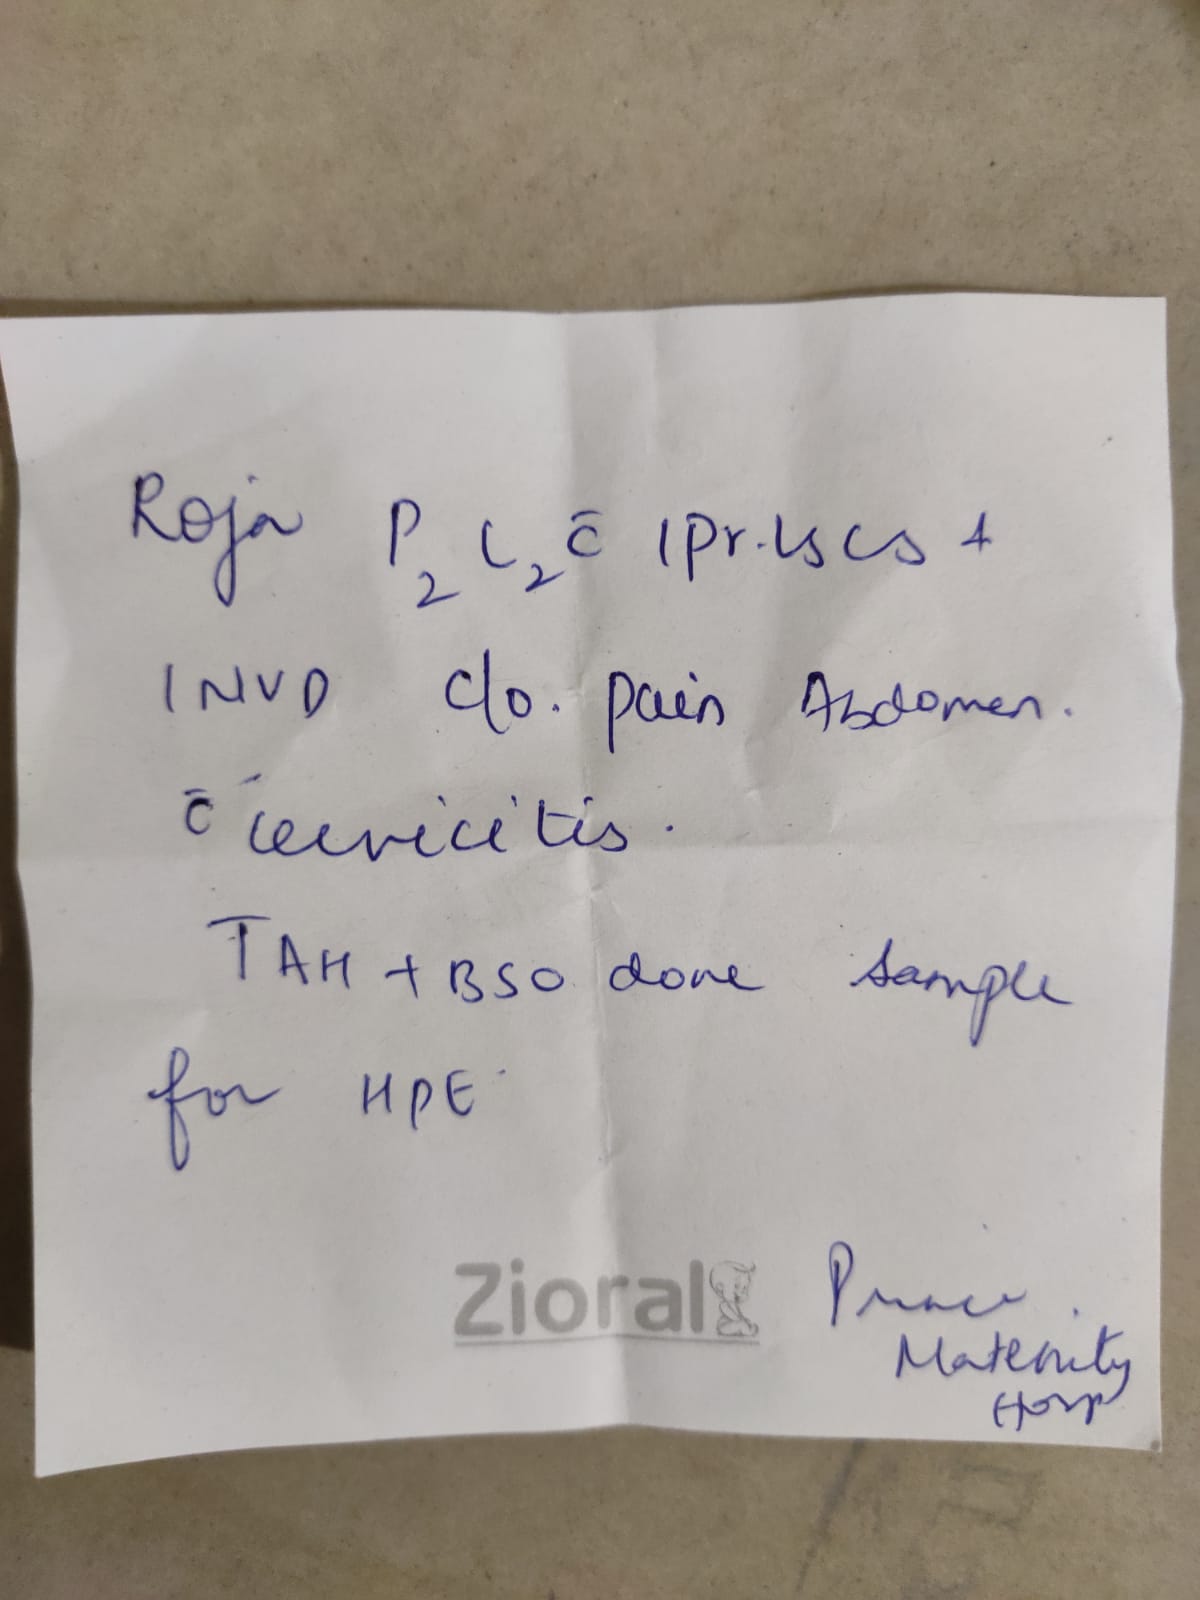 Roja P2 L2 c̄ 1 Pr. LSCS +
1 NVD c/o. pain Abdomen.
c̄ cervicitis.
TAH + BSO done sample
for HPE.
Zioral
Maternity
Hosp